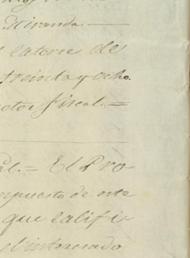 Miranda.
catorce de
treinta y ocho
fiscal.=
= El Pro-
mpuesto de este
que califi-
el interesado